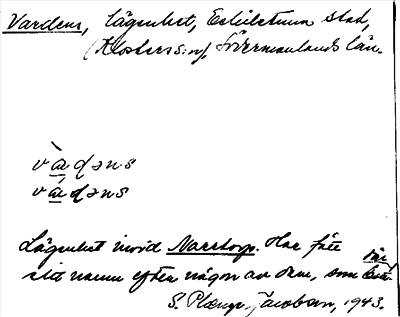 Vardens, Lägenhet, Eskilstuna stad,
(Klosters sn), Södermanlands län.
vàɖəns
váɖəns
Lägenhet invid Narstorp. Har fått
sitt namn efter någon av dem, som bott där
S. Plænge Jacobsen, 1943.